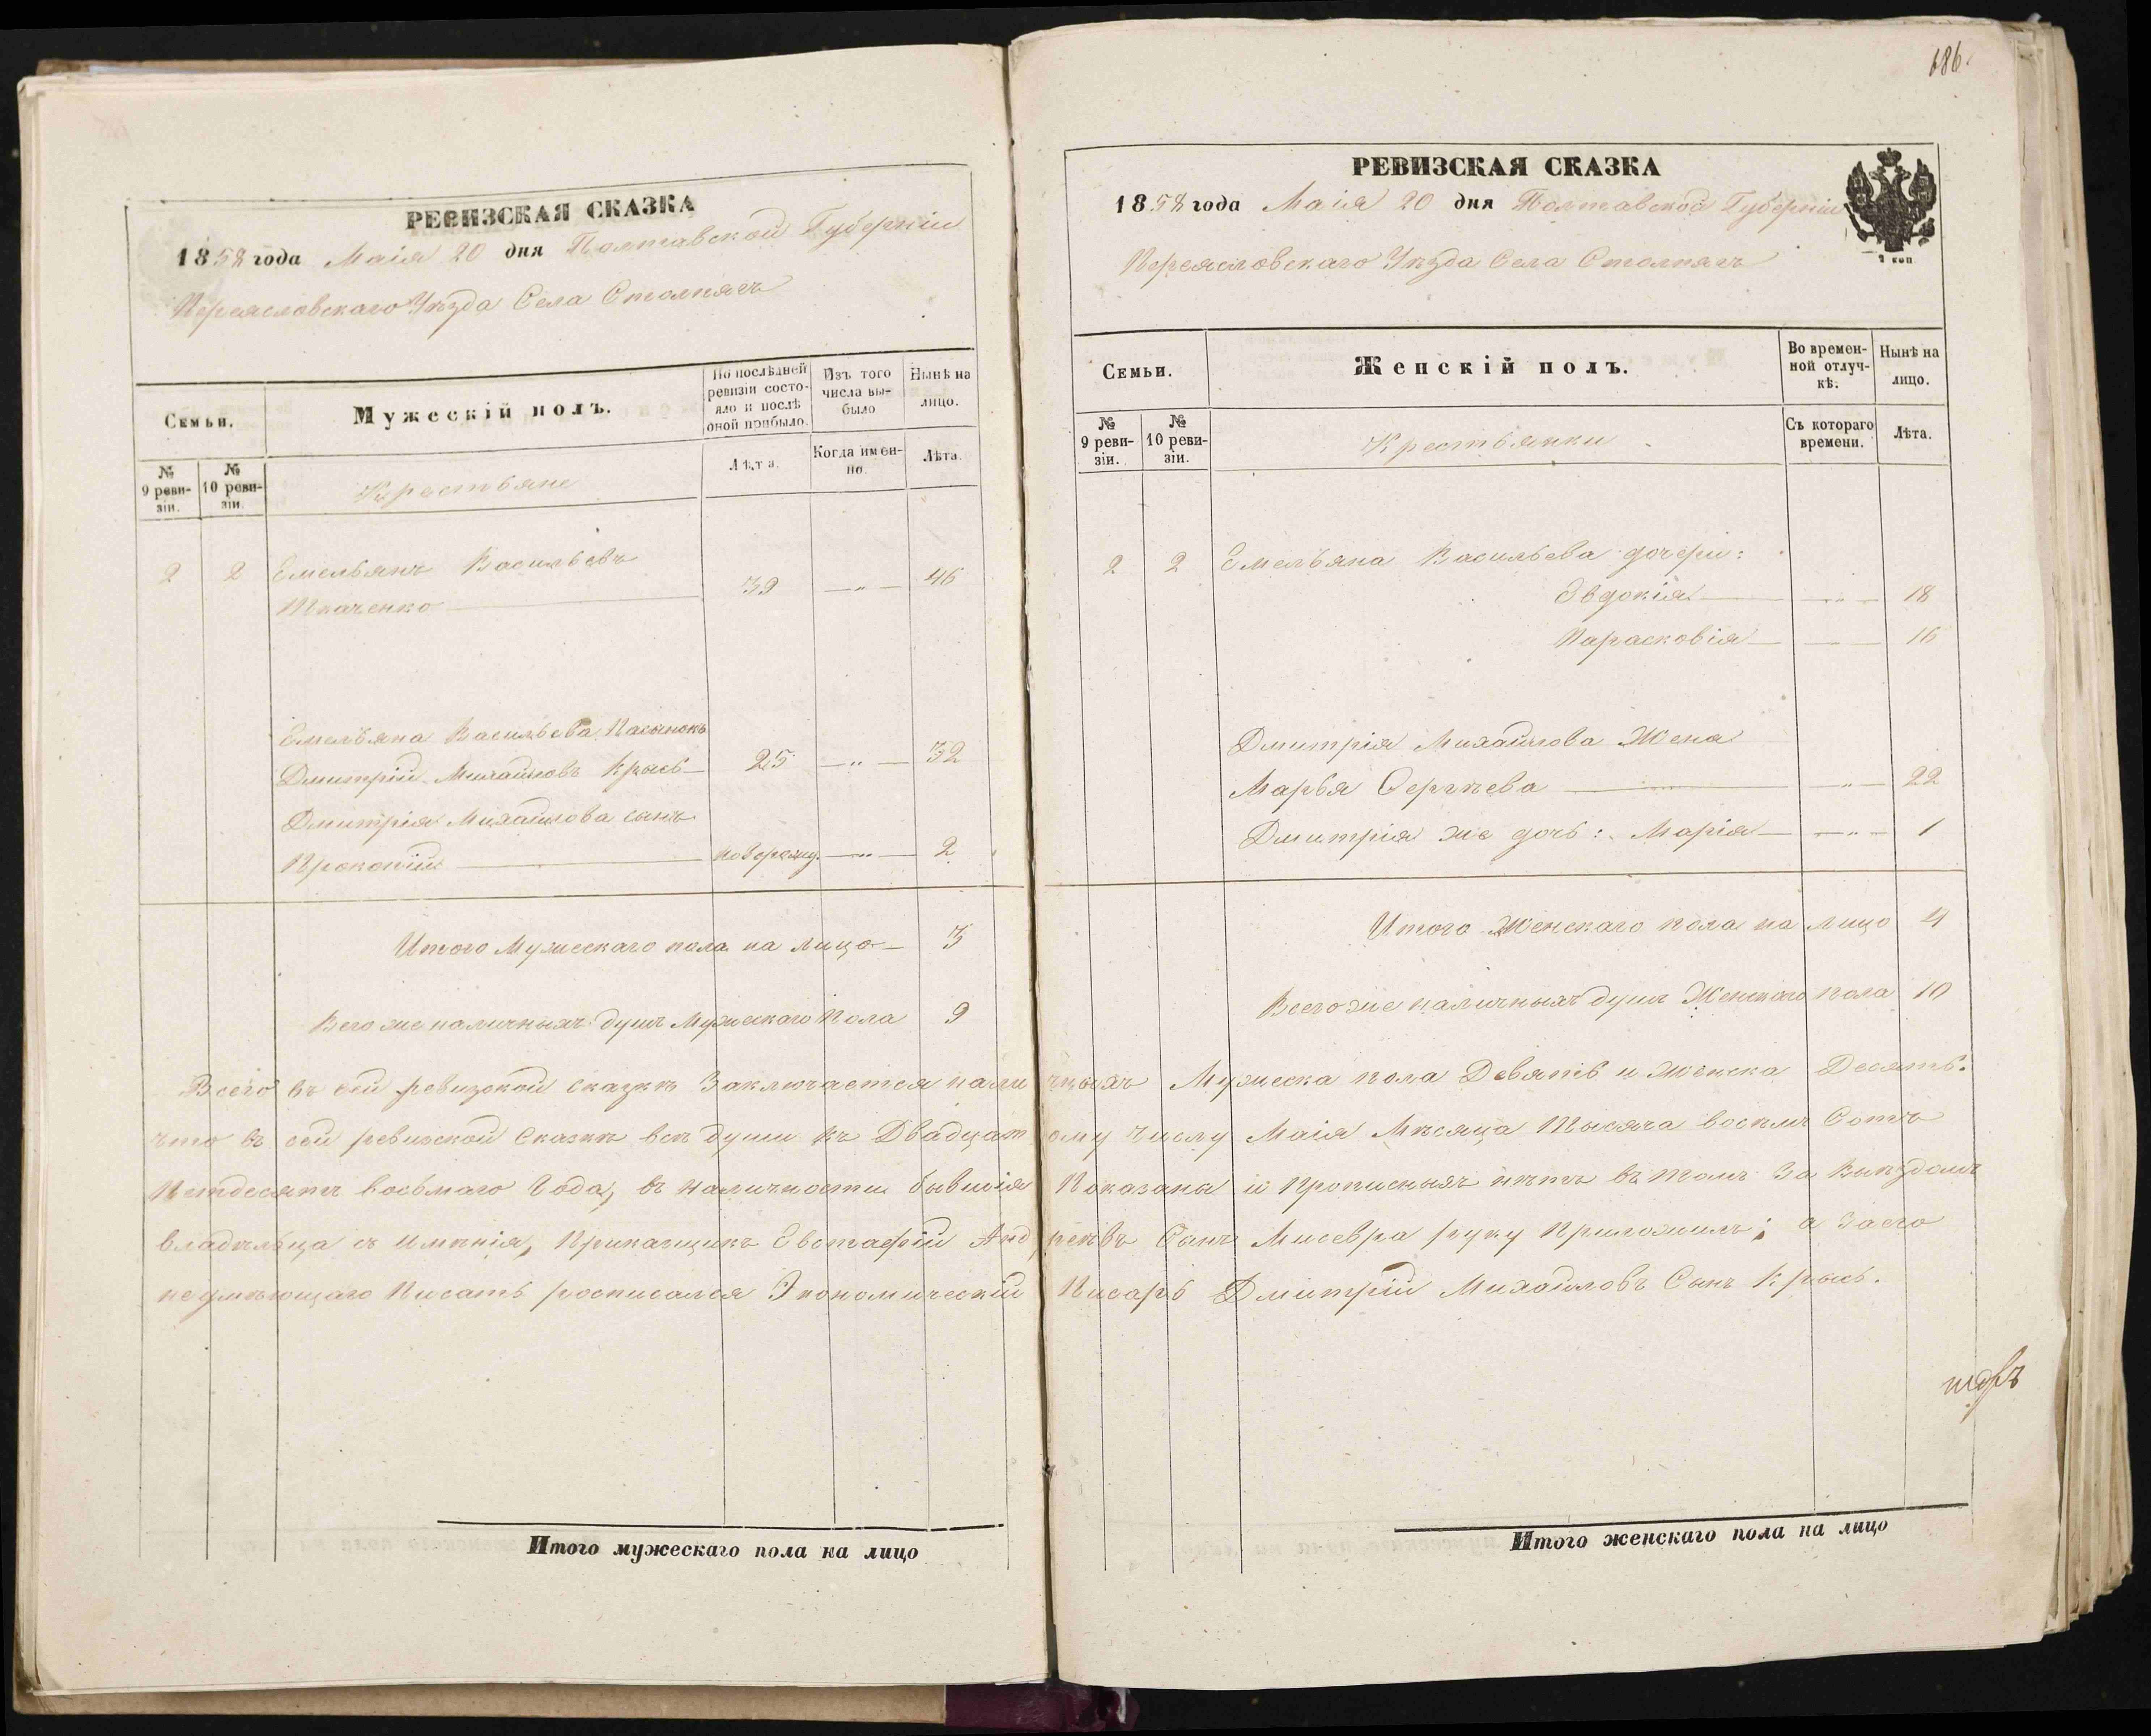 РЕВИЗСКАЯ СКАЗКА
1858 года Маія 20 дня Полтавской Губерніи
Переясловскаго Уѣзда Села Столпягъ
Семьи.
Мужескій полъ.
По послѣдней ревизіи состояло и послѣ оной прибыло.
Изъ того числа выбыло
Нынѣ на лицо.
№ 9 ревизіи.
№ 10 ревизіи.
Крестьяне
Лѣта.
Когда именно.
Лѣта.
2 2 Емельянъ Васильевъ
Ткаченко 39 — „ — 46
Емельяна Васильева Пасынокъ
Дмитрій Михайловъ Крысь 25 — „ — 32
Дмитрія Михайлова сынъ
Прокопій новорожд. — „ — 2
Итого Мужескаго пола на лицо — 3
Всего же наличныхъ душъ Мужескаго Пола 9
186.
РЕВИЗСКАЯ СКАЗКА
1858 года Маія 20 дня Полтавской Губерніи
Переясловскаго Уѣзда Села Столпягъ
2 коп
Семьи.
Женскій полъ.
Во временной отлучкѣ.
Нынѣ на лицо.
№ 9 ревизіи.
№ 10 ревизіи.
Крестьянки
Съ котораго времени.
Лѣта.
2 2 Емельяна Васильева дочери:
Эвдокія — „ — 18
Парасковія — „ — 16
Дмитрія Михайлова Жена
Марья Сергѣева — „ — 22
Дмитрія же дочь: Марія — „ — 1
Итого Женскаго пола на лицо 4
Всего же наличныхъ душъ Женскаго пола 10
Всего въ сей ревизской сказкѣ Заключается наличныхъ Мужеска пола Девять и женска Десять.
что въ сей ревизской Сказкѣ всѣ души къ Двадцатому Числу Маія Мѣсяца Тысяча восѣмъ Сотъ
Петдесятъ восьмаго Года, въ наличности бывшія Показаны и Прописныхъ нѣтъ въ томъ За Выѣздомъ
владѣльца съ имѣнія, Прикащикъ Евстафій Андреевъ Сынъ Мисевра руку Приложилъ; а За его
неумѣющаго Писать росписался Экономическій Писарь Дмитрій Михайловъ Сынъ Крысь.
Итого мужескаго пола на лицо
Итого женскаго пола на лицо